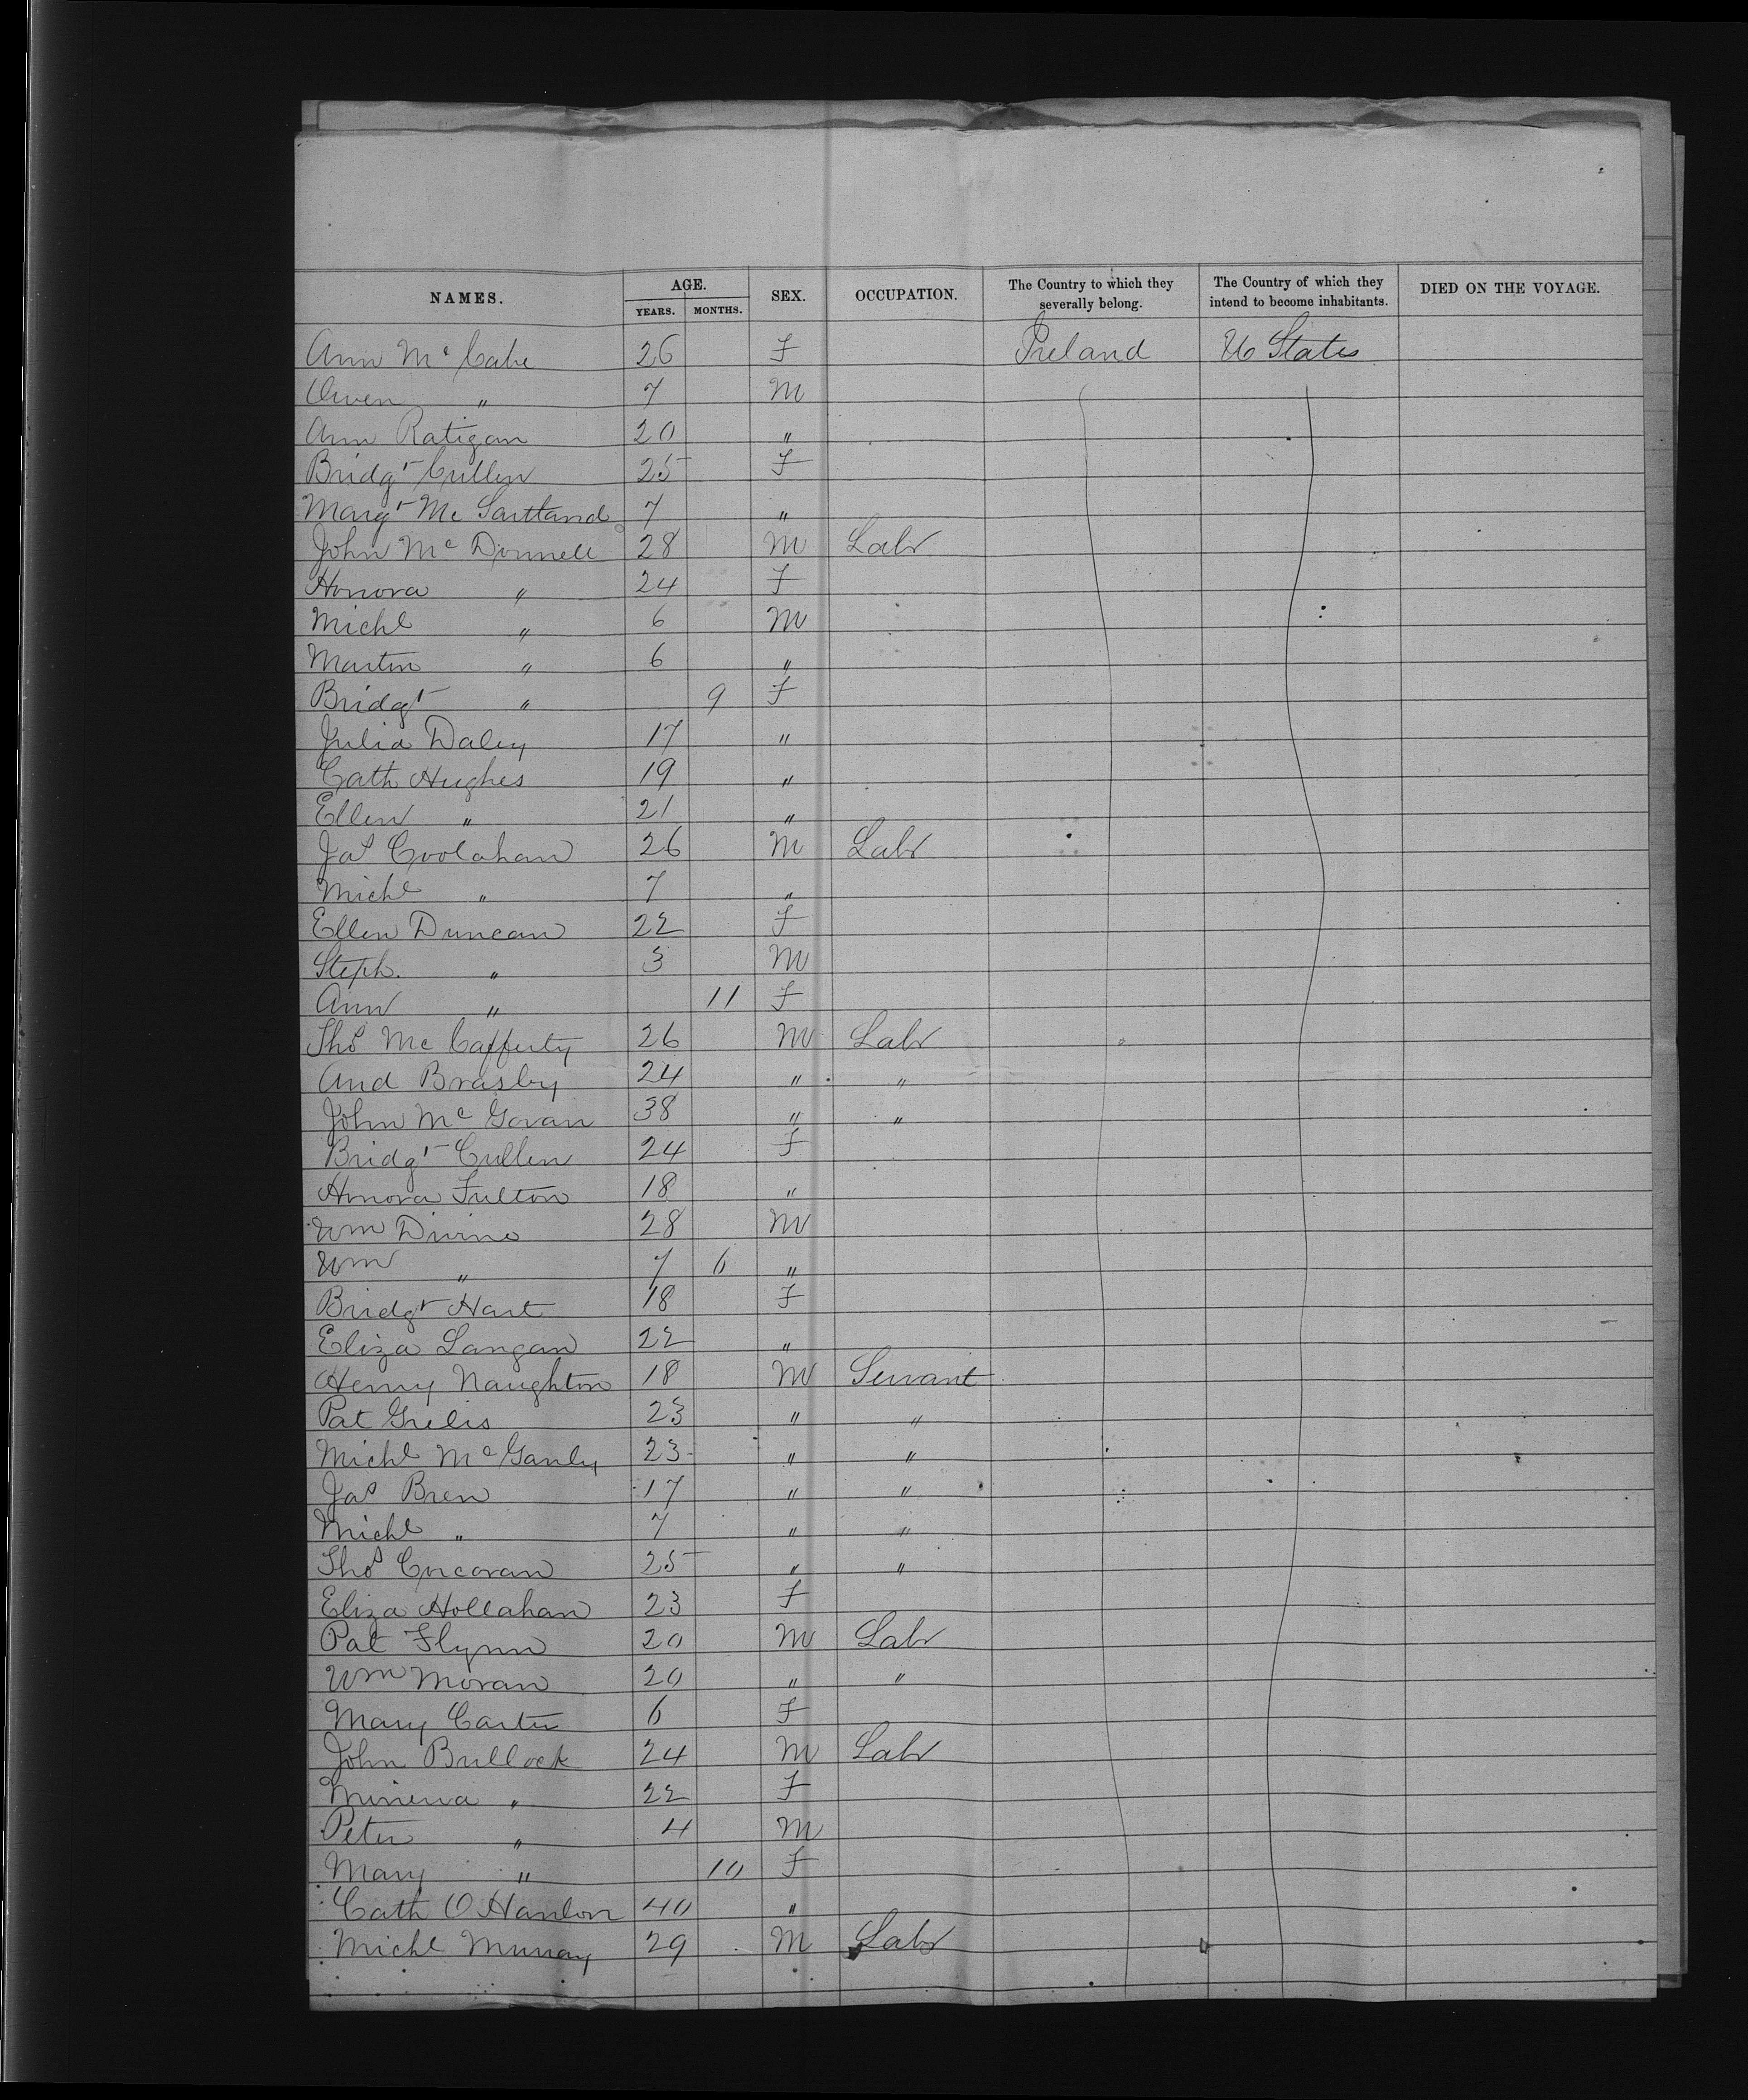 NAMES. AGE. SEX. OCCUPATION. The Country to which they severally belong. The Country of which they intend to become inhabitants. DIED ON THE VOYAGE.
YEARS. MONTHS.
Ann Mc Cabe 26 F Ireland U States
Owen " 7 M
Ann Ratigan 20 "
Bridgt Cullen 25 F
Margt Mc Partland 7 "
John Mc Donnell 28 M Labr
Honora " 24 F
Michl " 6 M
Martin " 6 "
Bridgt " 9 F
Julia Daley 17 "
Cath Hughes 19 "
Ellen " 21 "
Jas Coolahan 26 M Labr
Michl " 7 "
Ellen Duncan 22 F
Steph. " 3 M
Ann " 11 F
Thos Mc Cafferty 26 M Labr
And Brasby 24 " "
John Mc Govan 38 " "
Bridgt Cullen 24 F
Honora Fulton 18 "
Wm Divine 28 M
Wm " 7 6 "
Bridgt Hart 18 F
Eliza Langan 22 "
Henry Naughton 18 M Servant
Pat Grelis 23 " "
Michl Mc Ganly 23 " "
Jas Bren 17 " "
Michl " 7 " "
Thos Corcoran 25 " "
Eliza Hollahan 23 F
Pat Flynn 20 M Labr
Wm Moran 20 " "
Mary Carter 6 F
John Bullock 24 M Labr
Minerva " 22 F
Peter " 4 M
Mary " 10 F
Cath O Hanlon 40 "
Michl Murray 29 M Labr